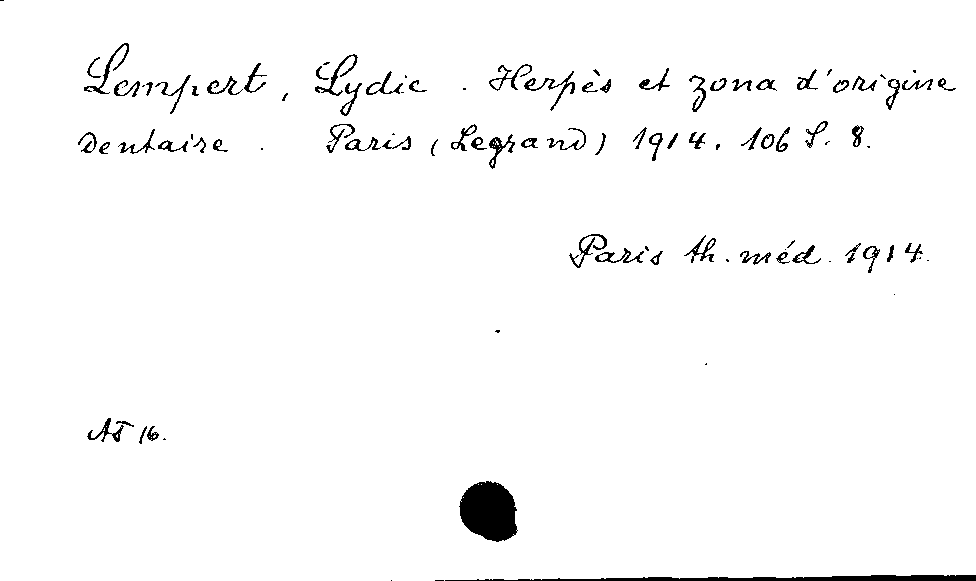 Lempert, Lydie. Herpès et zona d'origine
dentaire. Paris (Legrand) 1914. 106 S. 8.
Paris th. méd. 1914.
AT 16.